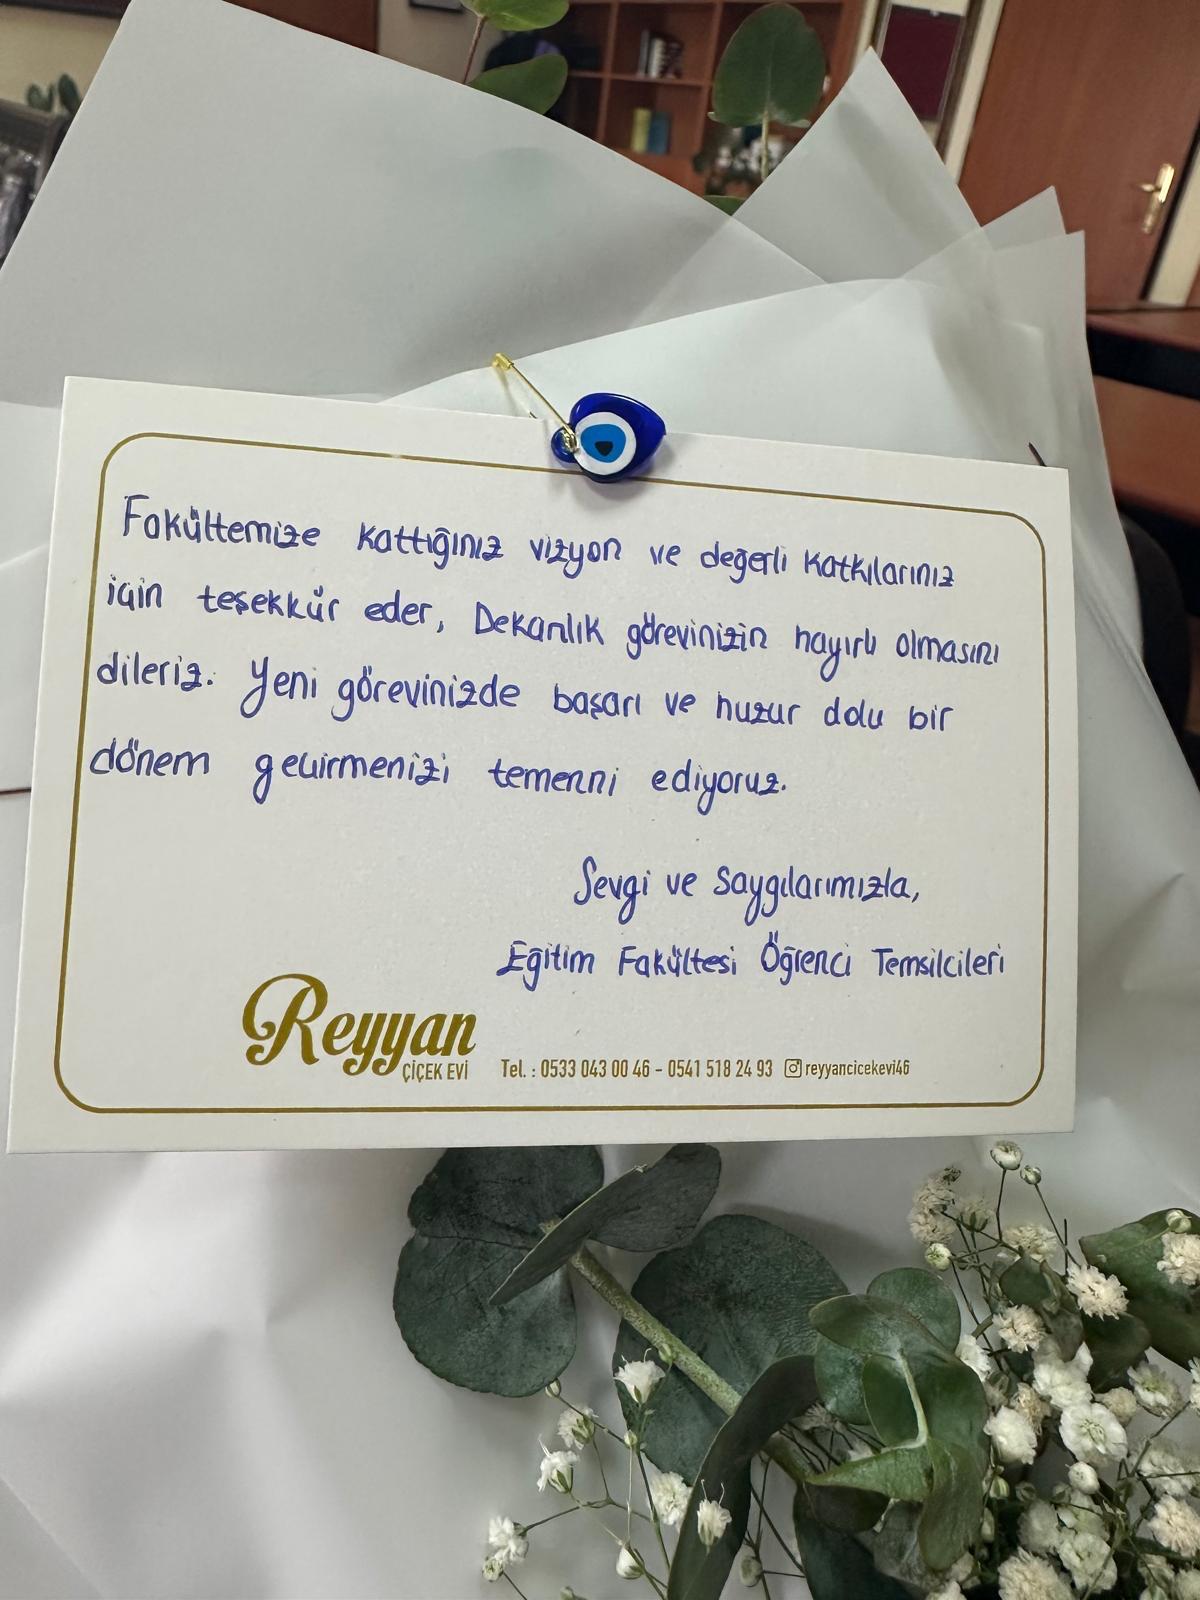 Fakültemize kattığınız vizyon ve değerli katkılarınız
için teşekkür eder, Dekanlık görevinizin hayırlı olmasını
dileriz. Yeni görevinizde başarı ve huzur dolu bir
dönem geçirmenizi temenni ediyoruz.
Sevgi ve Saygılarımızla,
Eğitim Fakültesi Öğrenci Temsilcileri
Reyyan
ÇİÇEK EVİ
Tel. : 0533 043 00 46 - 0541 518 24 93 reyyancicekevi46